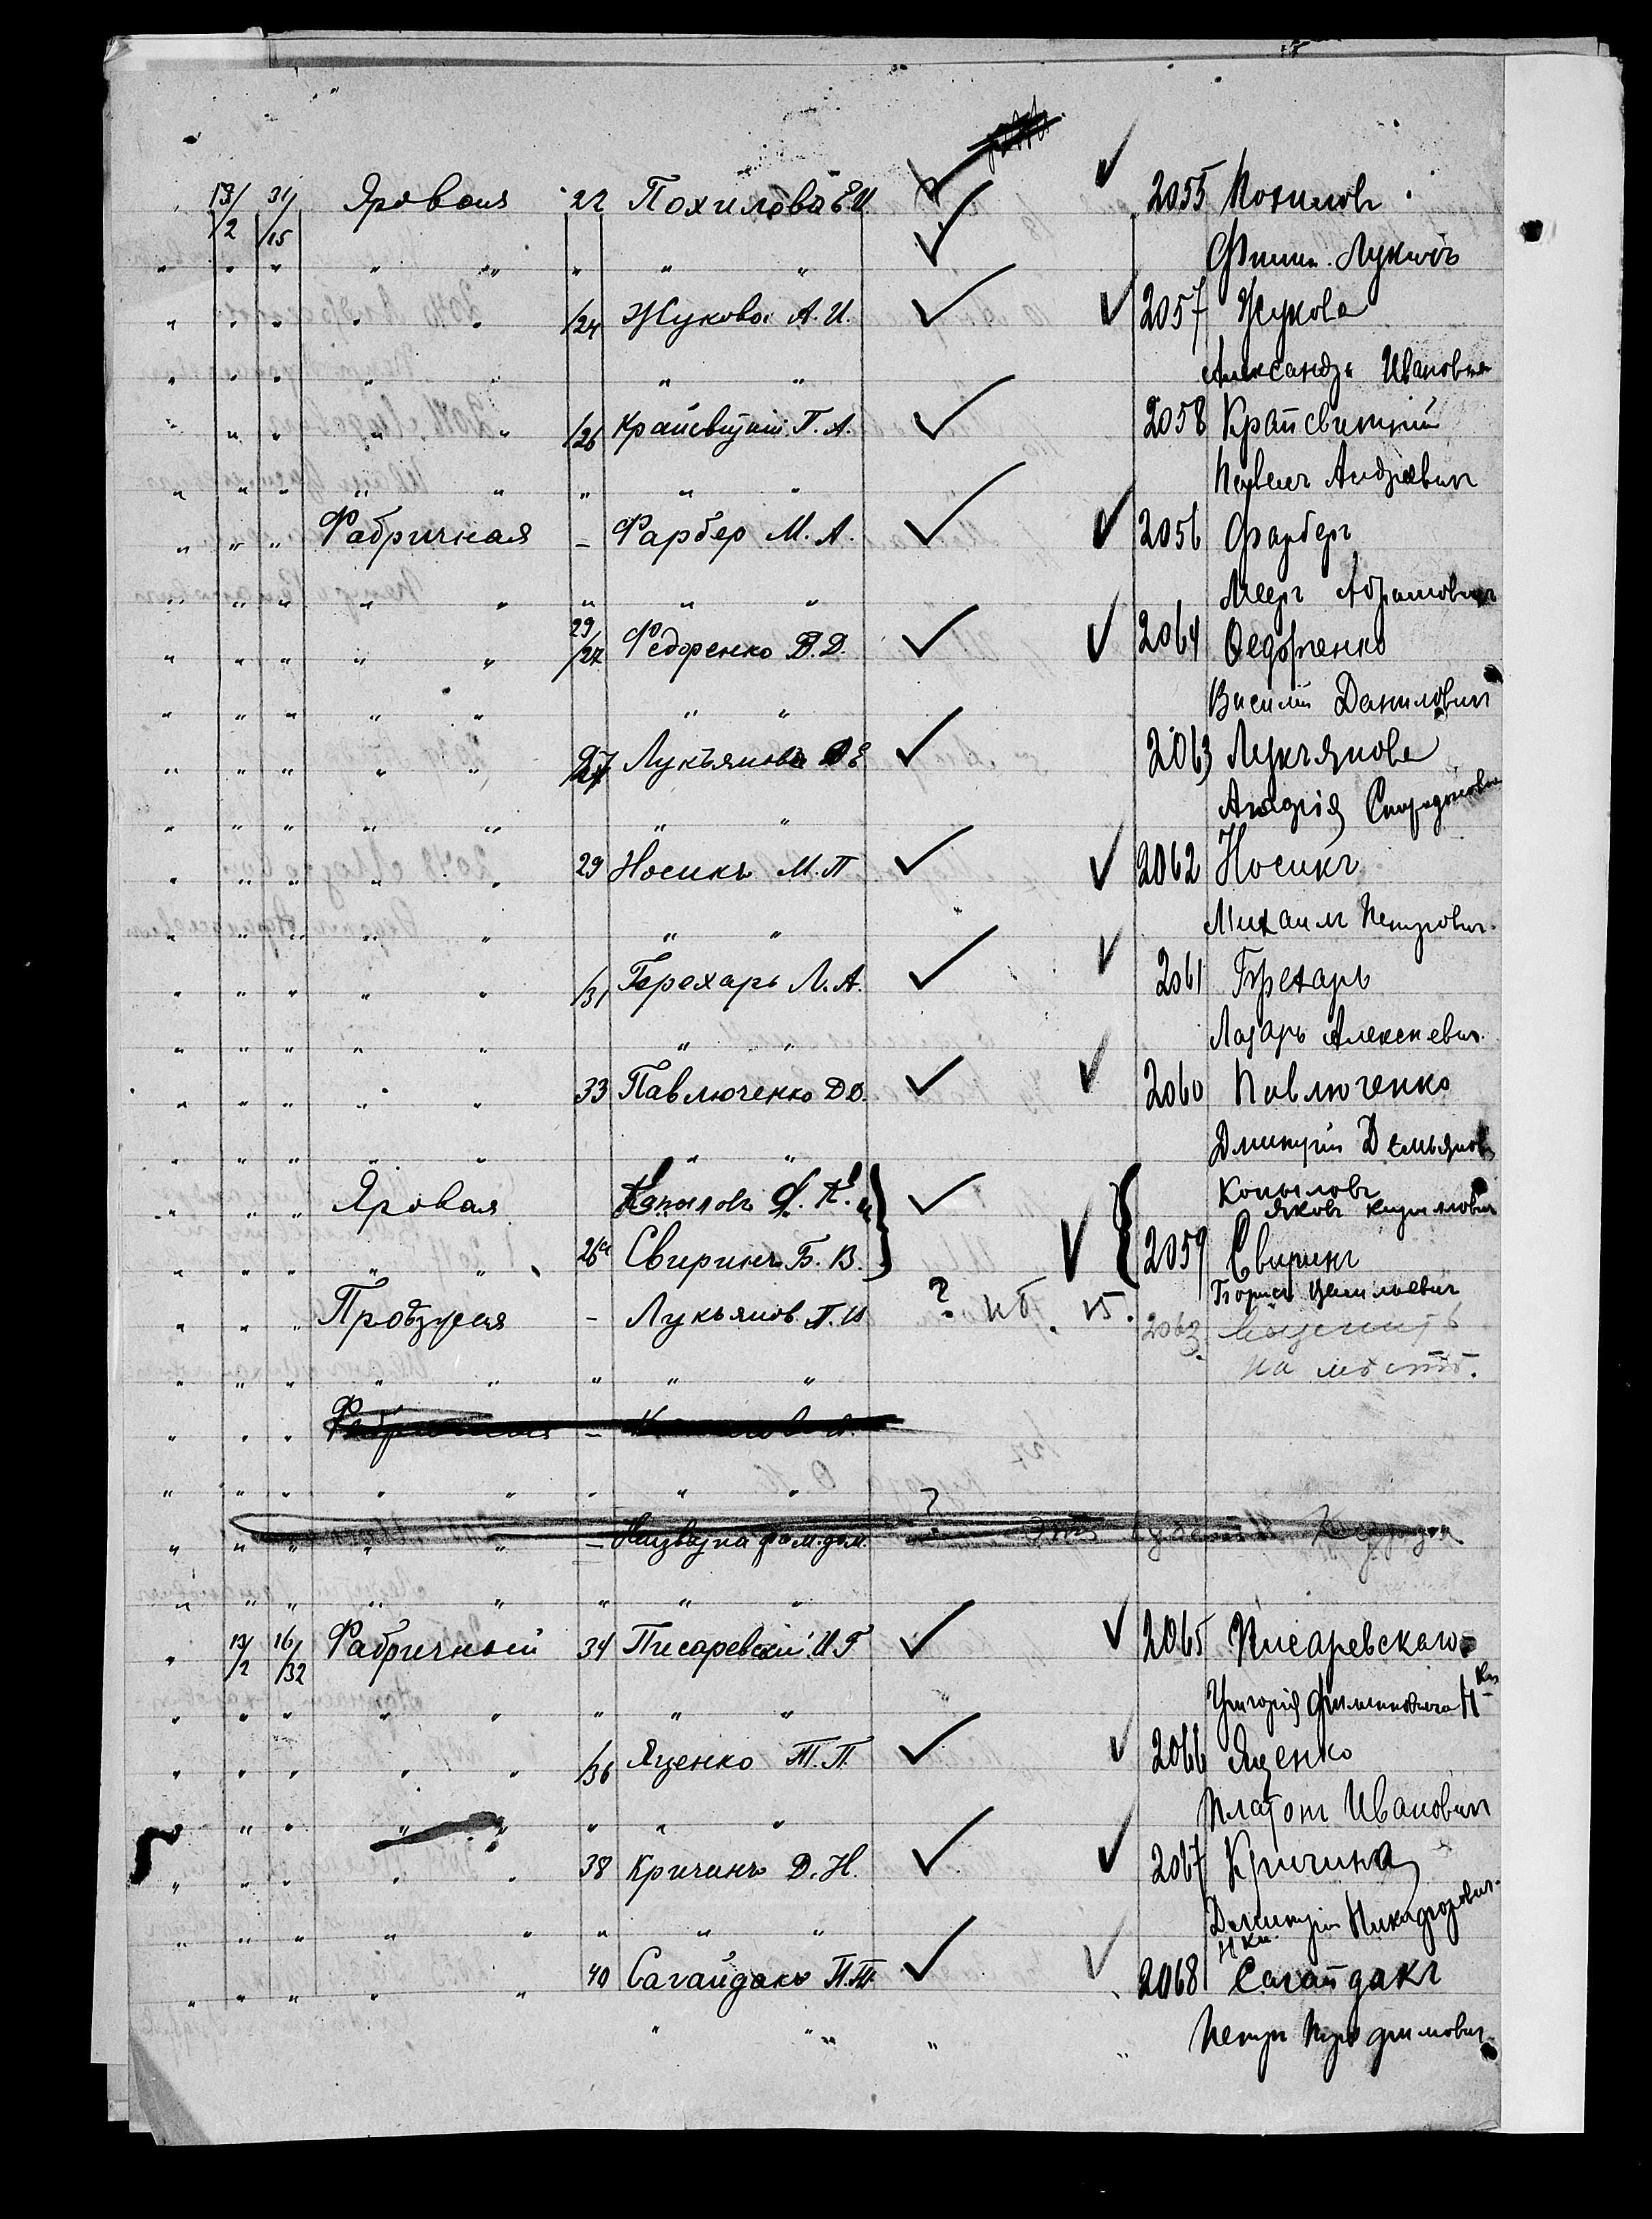 13/2 31/15 Яровая 22 Похилова Е И. 2055 Похилов
" " " " " " " " Лукичъ
" " " " " /24 Жукова А. И. 2057 Жукова
" " " " " " Александра Ивановна
" " " " " /26 Крайсвитний П. А. 2058 Крайсвитний
" " " " " " " " Павелъ Андреевич
" " " Фабричная – Фарбер М. А. 2056 Фарберъ
" " " " " " " " Мееръ Абрамович
" " " " " 29/27 Федоренко В. Д. 2064 Федоренко
" " " " " " " Василій Данилович
" " " " " 27 Лукъянова 2063 Лукъянова
" " " " " " " Спиридоновна
" " " " " 29 Носикъ М. П 2062 Носикъ
" " " " " " " Михаилъ Петрович.
" " " " " /31 Терехарь Л. А. 2061
" " " " " " " Лазарь Алексеевич.
" " " " " 33 Павлюченко Д Д. 2060 Павлюченко
" " " " " " " Дмитрій Демьянов
" " " Яровая Копылов Копыловъ
Яковъ Кириллович
" " " " " 26а Свиринъ Б. В. 2059 Свиринъ
Борисъ
" " " – Лукьянов П. И ? 2063
" " " " " " " " на местѣ.
" " " –
" " " " " " " "
" " " " " – ?
" " " " " " " "
" 13/2 16/32 Фабричный 34 Писаревский И. Г 2065 Писаревскаго
" " " " " " " " Григорія Филиповича Н–ки
" " " " " /36 Яценко П. 2066 Яценко
" " " " " " " " Платонъ Иванович
" " " " " 38 Кричинъ Д. Н. 2067 Кричина
" " " " " " " " Дмитрій Никифорович.
Н–ки
" " " " " 40 Сагайдакъ П. Т. 2068 Сагайдакъ
" " " " " Петръ